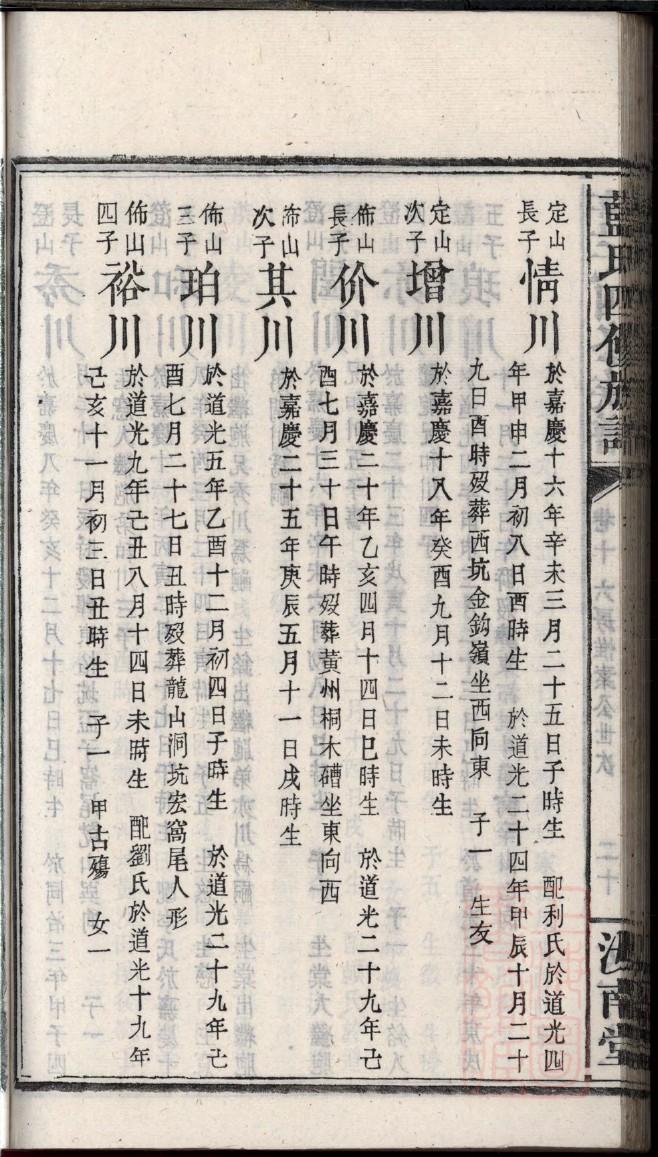 藍氏四修族譜
卷十
六房惟業公世次
二十
汝南堂
定山長子
情川
於嘉慶十六年辛未三月二十五日子時生 配利氏於道光四
年甲申二月初八日酉時生 於道光二十四年甲辰十月二十
九日酉時歿葬西坑金鈎嶺坐西向東 子一 生友
定山次子
增川
於嘉慶十八年癸酉九月十二日未時生
佈山長子
价川
於嘉慶二十年乙亥四月十四日巳時生 於道光二十九年己
酉七月三十日午時歿葬黃州桐木磄坐東向西
佈山次子
其川
於嘉慶二十五年庚辰五月十一日戌時生
佈山三子
珀川
於道光五年乙酉十二月初四日子時生 於道光二十九年己
酉七月二十七日丑時歿葬龍山洞坑宏窩尾人形
佈山四子
裕川
於道光九年己丑八月十四日未時生 配劉氏於道光十九年
己亥十一月初三日丑時生 子一 甲古殤 女一